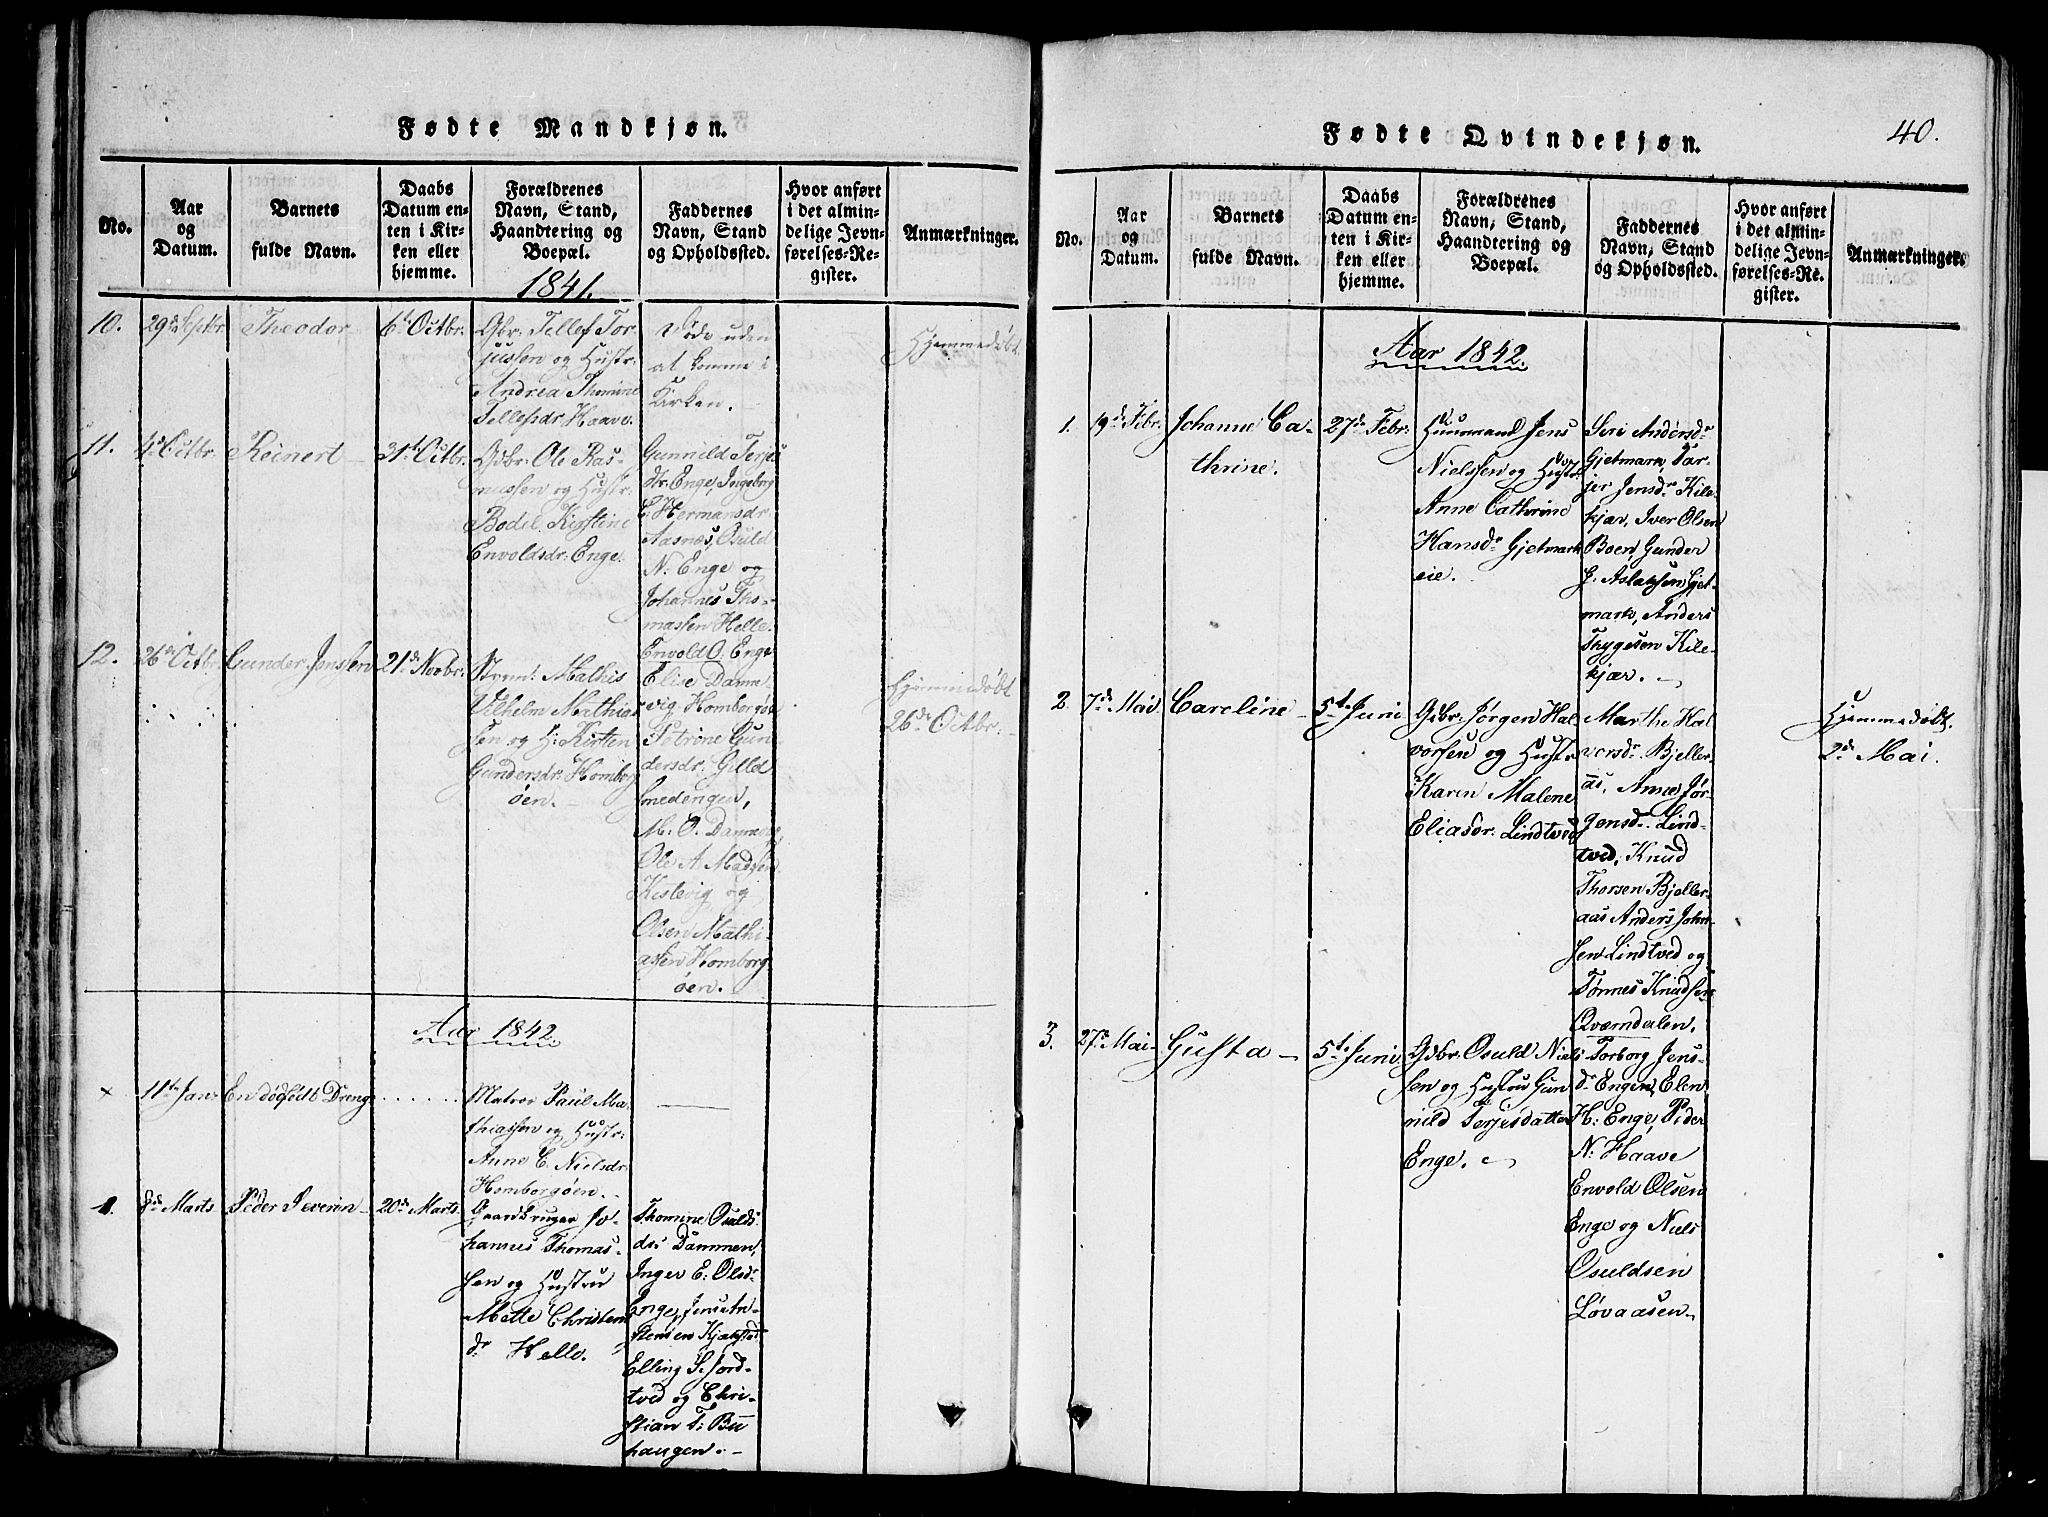 Fødte Mandkjøn.
No.
Aar
og
Datum.
Barnets
fulde Navn.
Daabs
Datum en-
ten i Kir-
ken eller
hjemme.
Forældrenes
Navn, Stand,
Haandtering og
Boepæl.
Faddernes
Navn, Stand
og Opholdssted.
Hvor anført
i det almin-
delige Jevn-
førelses-Re-
gister.
Anmærkninger.
1841.
10.
29de Septbr.
Theodor
6te Octbr.
Gbr: Tellef Tor-
jussen og Hustr:
Andrea Thomine
Tellefsdr: Haave.
Døde uden
at komme i
Kirken.
Hjemmedøbt
11.
4de Octbr.
Reinert
31te Octbr.
Gdbr: Ole Ras-
mussen og Hustr:
Bodil Kirstine
Envoldsdr: Enge.
Gunnild Terjes
dtr: Enge, Ingeborg
E: Hermansdr
Aasnæs, Osuld
N: Enge og
Johannes Tho-
massen Helle.
Envold O: Enge
12.
26de Octbr.
Gunder Jenssen
21de Novbr.
Strm: Mathis
Vilhelm Mathias
sen og H: Kirsten
Gundersdr: Homborg
øen.
Elise Danne-
vig, Homborgøe
Petrine Gun-
dersdr: Gilld
smedengen,
M: O. Dannevig,
Ole A. Madsen
Kistevig og
Olsen Mathi-
assen Homborg
øen.
Hjemmedøbt
26de Octbr.
Aar 1842.
×
11te Janr.
En dødfødt Dreng
Matros Paul Ma-
thiassen og Hustr:
Anne C. Nielsdr.
Homborgøen.
1.
8de Marts
Peder Severin
20de Marts
Gaardbruger Jo-
hannes Thomas-
sen og Hustru
Mette Christens
dr Helle.
Thomine Osulds
dr: Dammen,
Inger E: Olsdr
Enge, Jens An-
stensen Kjæstad
Elling S. Jord-
tved og Chri-
stian T: Bu
haugen.
Fødte Qvindekjøn.
40.
No.
Aar
og
Datum.
Barnets
fulde Navn.
Daabs
Datum en-
ten i Kir-
ken eller
hjemme.
Forældrenes
Navn, Stand,
Haandtering og
Boepæl.
Faddernes
Navn, Stand
og Opholdssted.
Hvor anført
i det almin-
delige Jevn-
førelses-Re-
gister.
Anmærkninger.
Aar 1842.
1.
19de Febr.
Johanne Ca-
thrine.
27de Febr.
Huusmand Jens
Nielssen og Hustr
Anne Cathrine
Hansdr Gjetmark
eie.
Siri Andersdr
Gjetmark, Tar-
jer Jensdr Kile-
kjær, Iver Olsen
Boen, Gunder
G. Aslaksen Gjet
mark, Anders
Thygesen Kile-
kjær.
2.
7de Mai
Caroline
5te Juni
Gdbr: Jørgen Hal
vorsen og Hustr
Karen Malene
Eliasdr. Lindtved
Marthe Hal
vorsdr Bjeller
aas, Anne Jør-
gensdr. Lind-
tved, Knud
Thorsen Bjeller-
aas Anders John-
sen Lindtved og
Tønnes Knudsen
Qværndalen.
Hjemmedøbt.
2de Mai.
3.
27de Mai
Gusta
5te Juni
Gdbr. Osuld Niels
sen og Hustru Gun
nild Terjesdatter
Enge.
Torborg Jens-
dr Engen, Elen
H: Enge, Peder
N: Haave
Envold Olsen
Enge og Niels
Osuldsen
Løvaasen